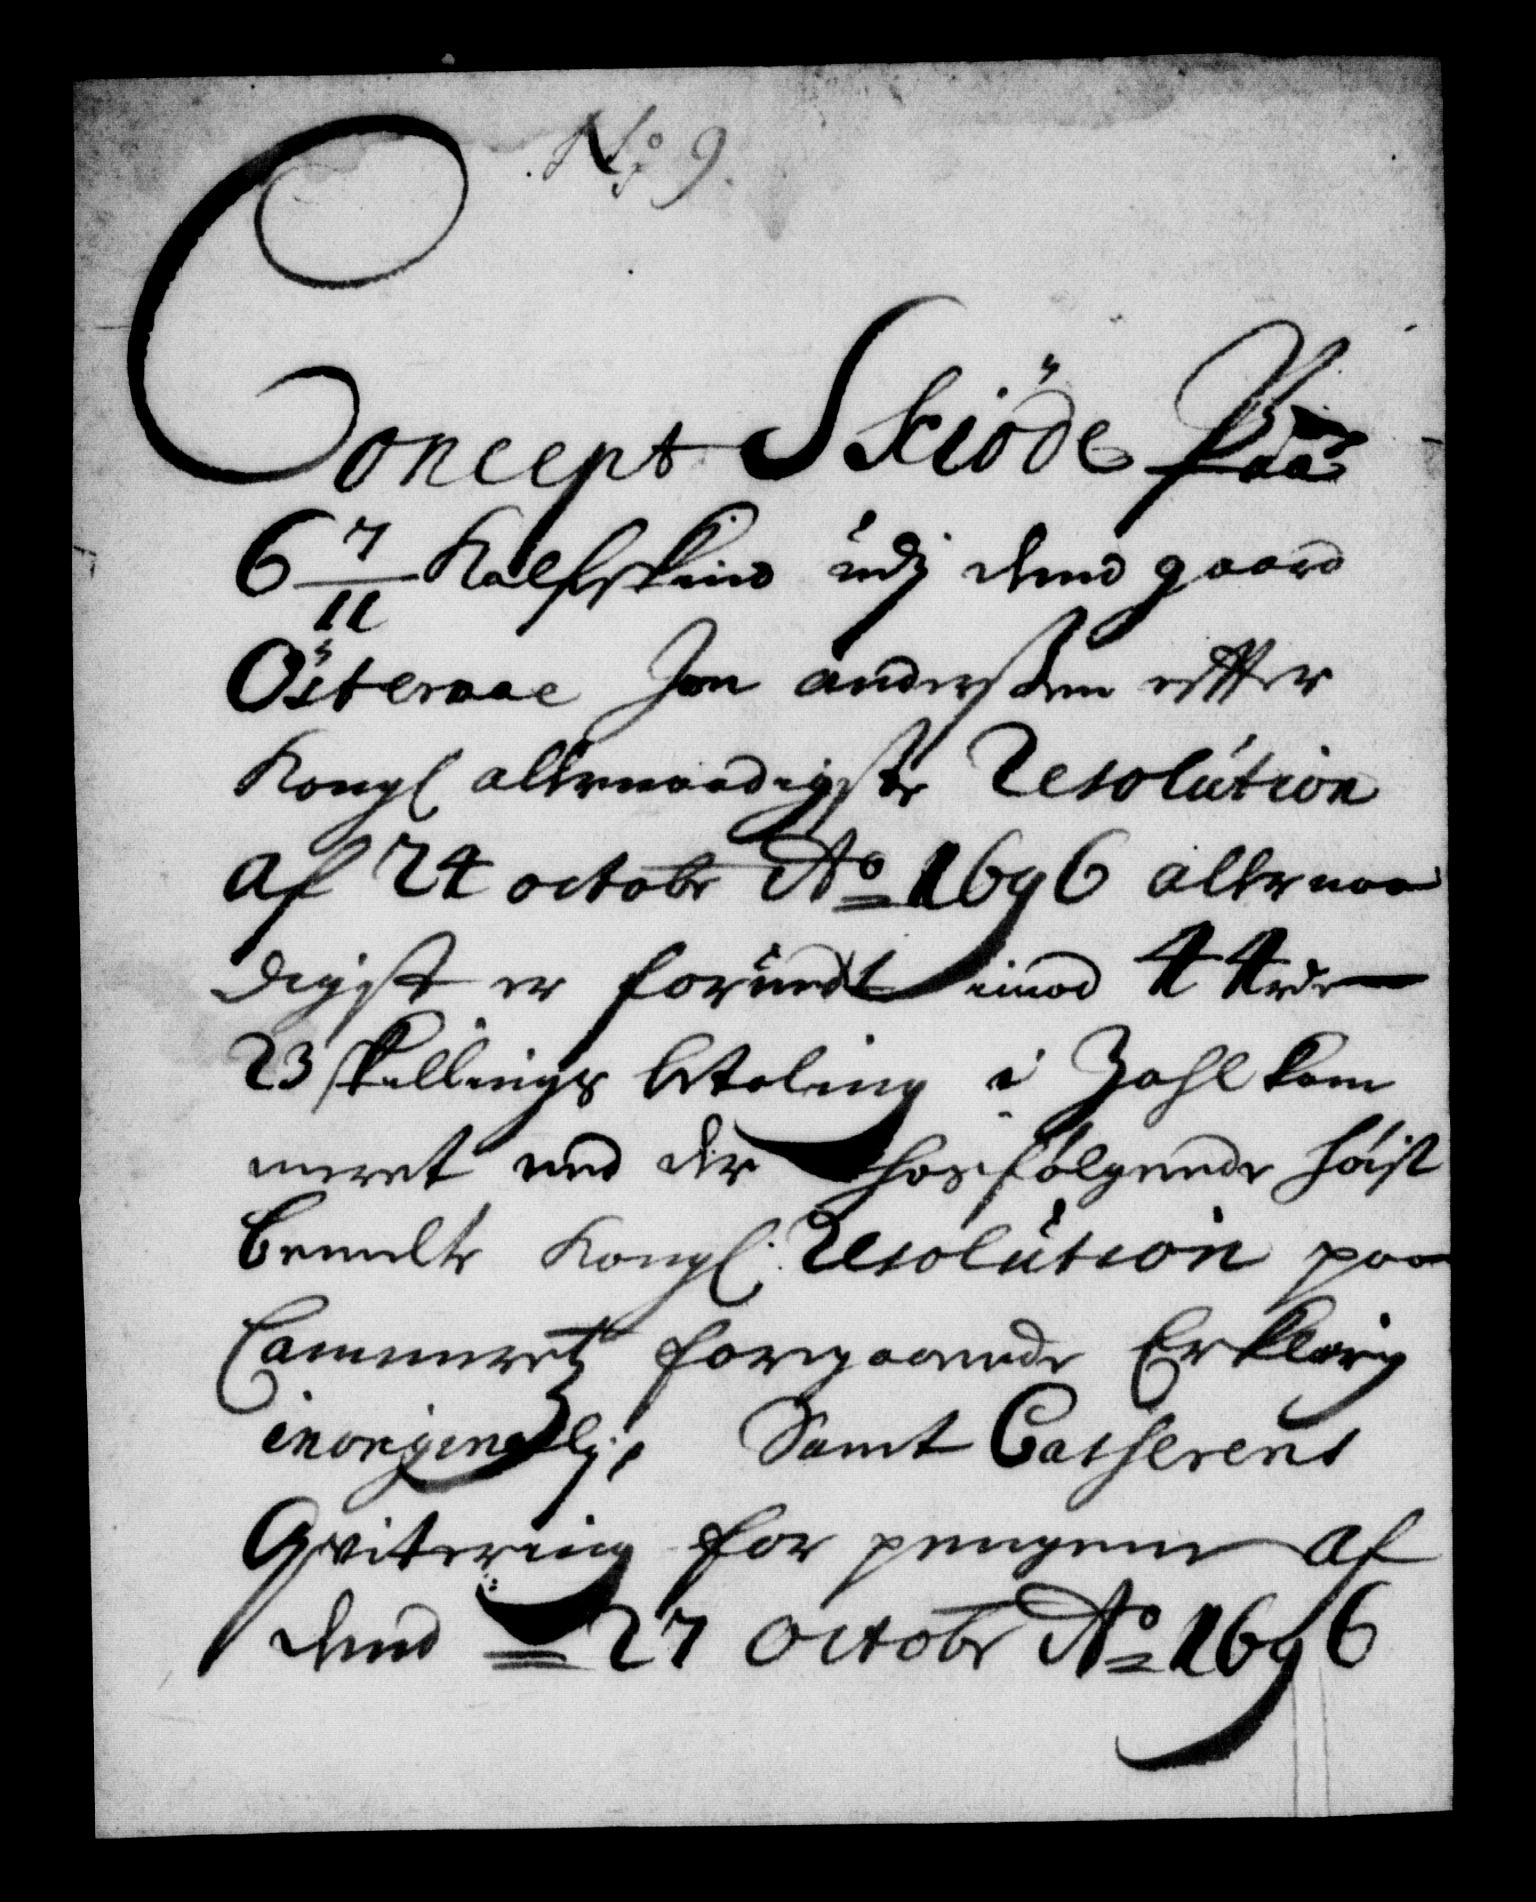 No. 9.
Concept Skiöde Paa
6 7/11 Kalfskind udj dend gaard
Österaae Jon anderßen effter
Kongl allernaadigste Resolution
af 24 octobr Ao 1696 allernaa
digst er forundt imod 44 rdr
23 skillings betaling i Zahlkam
meret med der hosfölgende höist
bemelte Kongl. Resolution paa
Cammeretz foregaaende Erklæring
in originalj, Samt Casserens
Qvitering for pengene af
dend 27 octobr Ao 1696